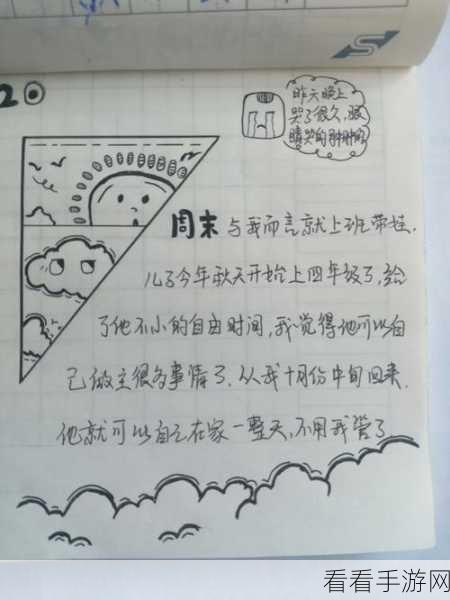 20
昨天晚上
哭了很久,眼
睛哭的肿肿的
周末 与我而言就上班带娃.
儿子今年秋天开始上四年级了,给
了他不小的自由时间,我觉得他可以自
己做主很多事情了.从我十月份中旬回来.
他就可以自己在家一整天,不用我管了
看看手游网